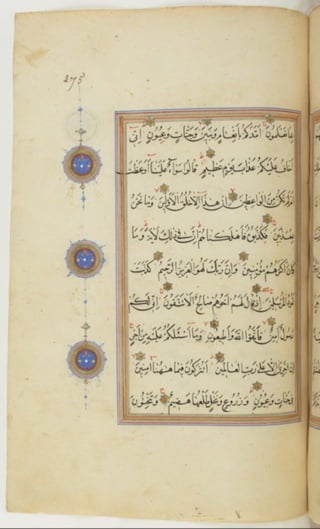 275
بما تعلمون امدكم بانعام وبنين وجنات وعيون انى
اخاف عليكم عذاب يوم عظيم قالوا سواء علينا اوعظت
ام لم تكن من الواعظين ان هذا الا خلق الاولين وما نحن
بمعذبين فكذبوه فاهلكناهم ان فى ذلك لاية وما
كان اكثرهم مؤمنين وان ربك لهو العزيز الرحيم كذبت
ثمود المرسلين اذ قال لهم اخوهم صالح الا تتقون انى لكم
رسول امين فاتقوا الله واطيعون وما اسئلكم عليه من اجر
ان اجرى الا على رب العالمين اتتركون فيما ههنا امنين
فى جنات وعيون وزروع ونخل طلعها هضيم وتنحتون